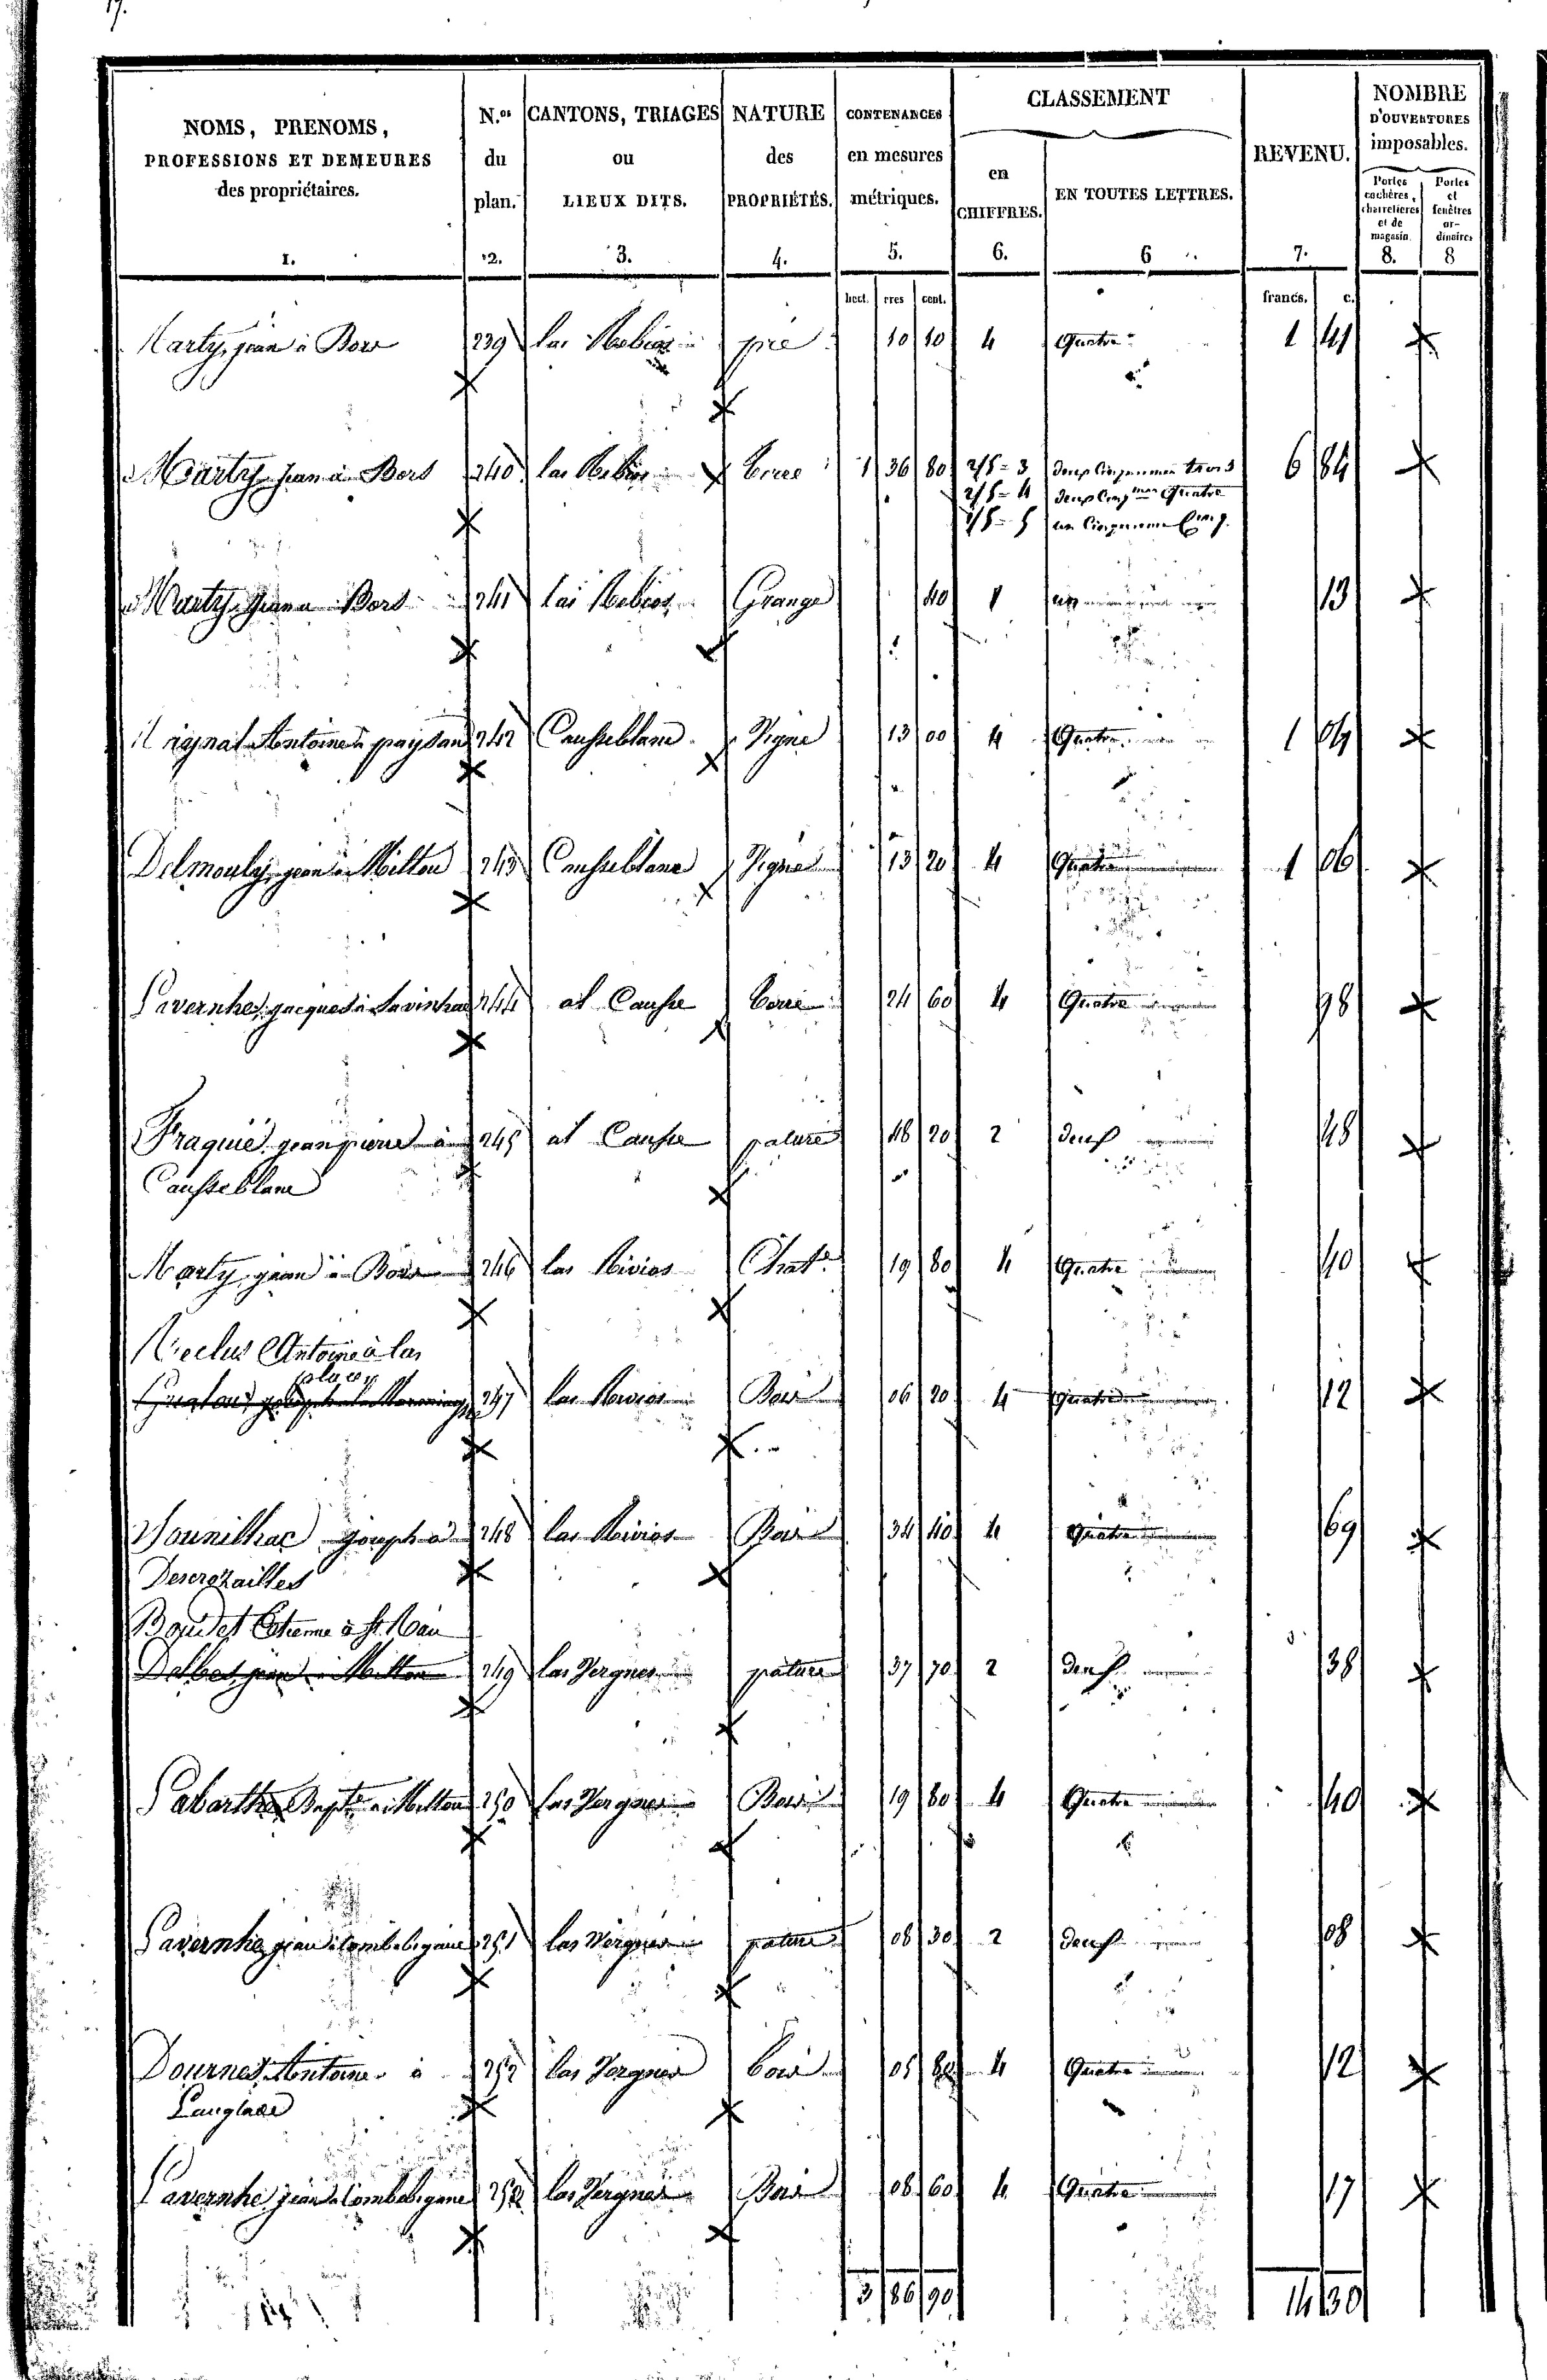 17.
NOMS, PRENOMS,
PROFESSIONS ET DEMEURES
des propriétaires.
1.
N.os
du
plan.
2.
CANTONS, TRIAGES
ou
LIEUX DITS.
3.
NATURE
des
PROPRIÉTÉS.
4.
CONTENANCES
en mesures
métriques.
5.
CLASSEMENT
en
CHIFFRES.
6.
EN TOUTES LETTRES.
6
REVENU.
7.
NOMBRE
D'OUVERTURES
imposables.
Portes cochères, charretières et de magasin.
8.
Portes et fenêtres ordinaires
8
hect. res cent. francs. c.
Marty, jean à Bors 239 las pré 10 10 4 Quatre 1 41
Marty jean à Bors 240 las terre 1 36 80 2/5 = 3 deux Cinquièmes trois 6 84
2/5 = 4 deux Cinqmes Quatre
1/5 = 5 un Cinquième Cinq.
Marty jean à Bors 241 las Grange 40 1 un 13
Antoine à paysan 242 Causseblanc Vigne 13 00 4 Quatre 1 04
Delmouly, jean à Milton 243 Causseblanc Vigne 13 20 4 Quatre 1 06
Lavernhe, jacques à Savinhac 244 al Causse terre 24 60 4 Quatre 98
Fraquié jean pierre à 245 al Causse pature 48 20 2 deux 48
Causseblanc
Marty, jean à Bors 246 las Rivies Chat. 19 80 4 Quatre 40
Antoine à las
places
247 las Rivies Bois 06 20 4 Quatre 12
Vounilhac joseph à 248 las Rivies Bois 34 40 4 Quatre 69
Desercailles
Boudet Etienne à St.
Delbes jean à Milton 249 las Vergnes pature 37 70 2 deux 38
Labarthe Bapte. à Milton 250 las Vergnes Bois 19 80 4 Quatre 40
Lavernhe jean à Combaligane 251 las Vergnes pature 08 30 2 deux 08
Dournes, Antoine à 252 las Vergnes bois 05 80 4 Quatre 12
Langlade
Lavernhe jean à Combaligane 253 las Vergnes Bois 08 60 4 Quatre 17
3 86 90 14 30